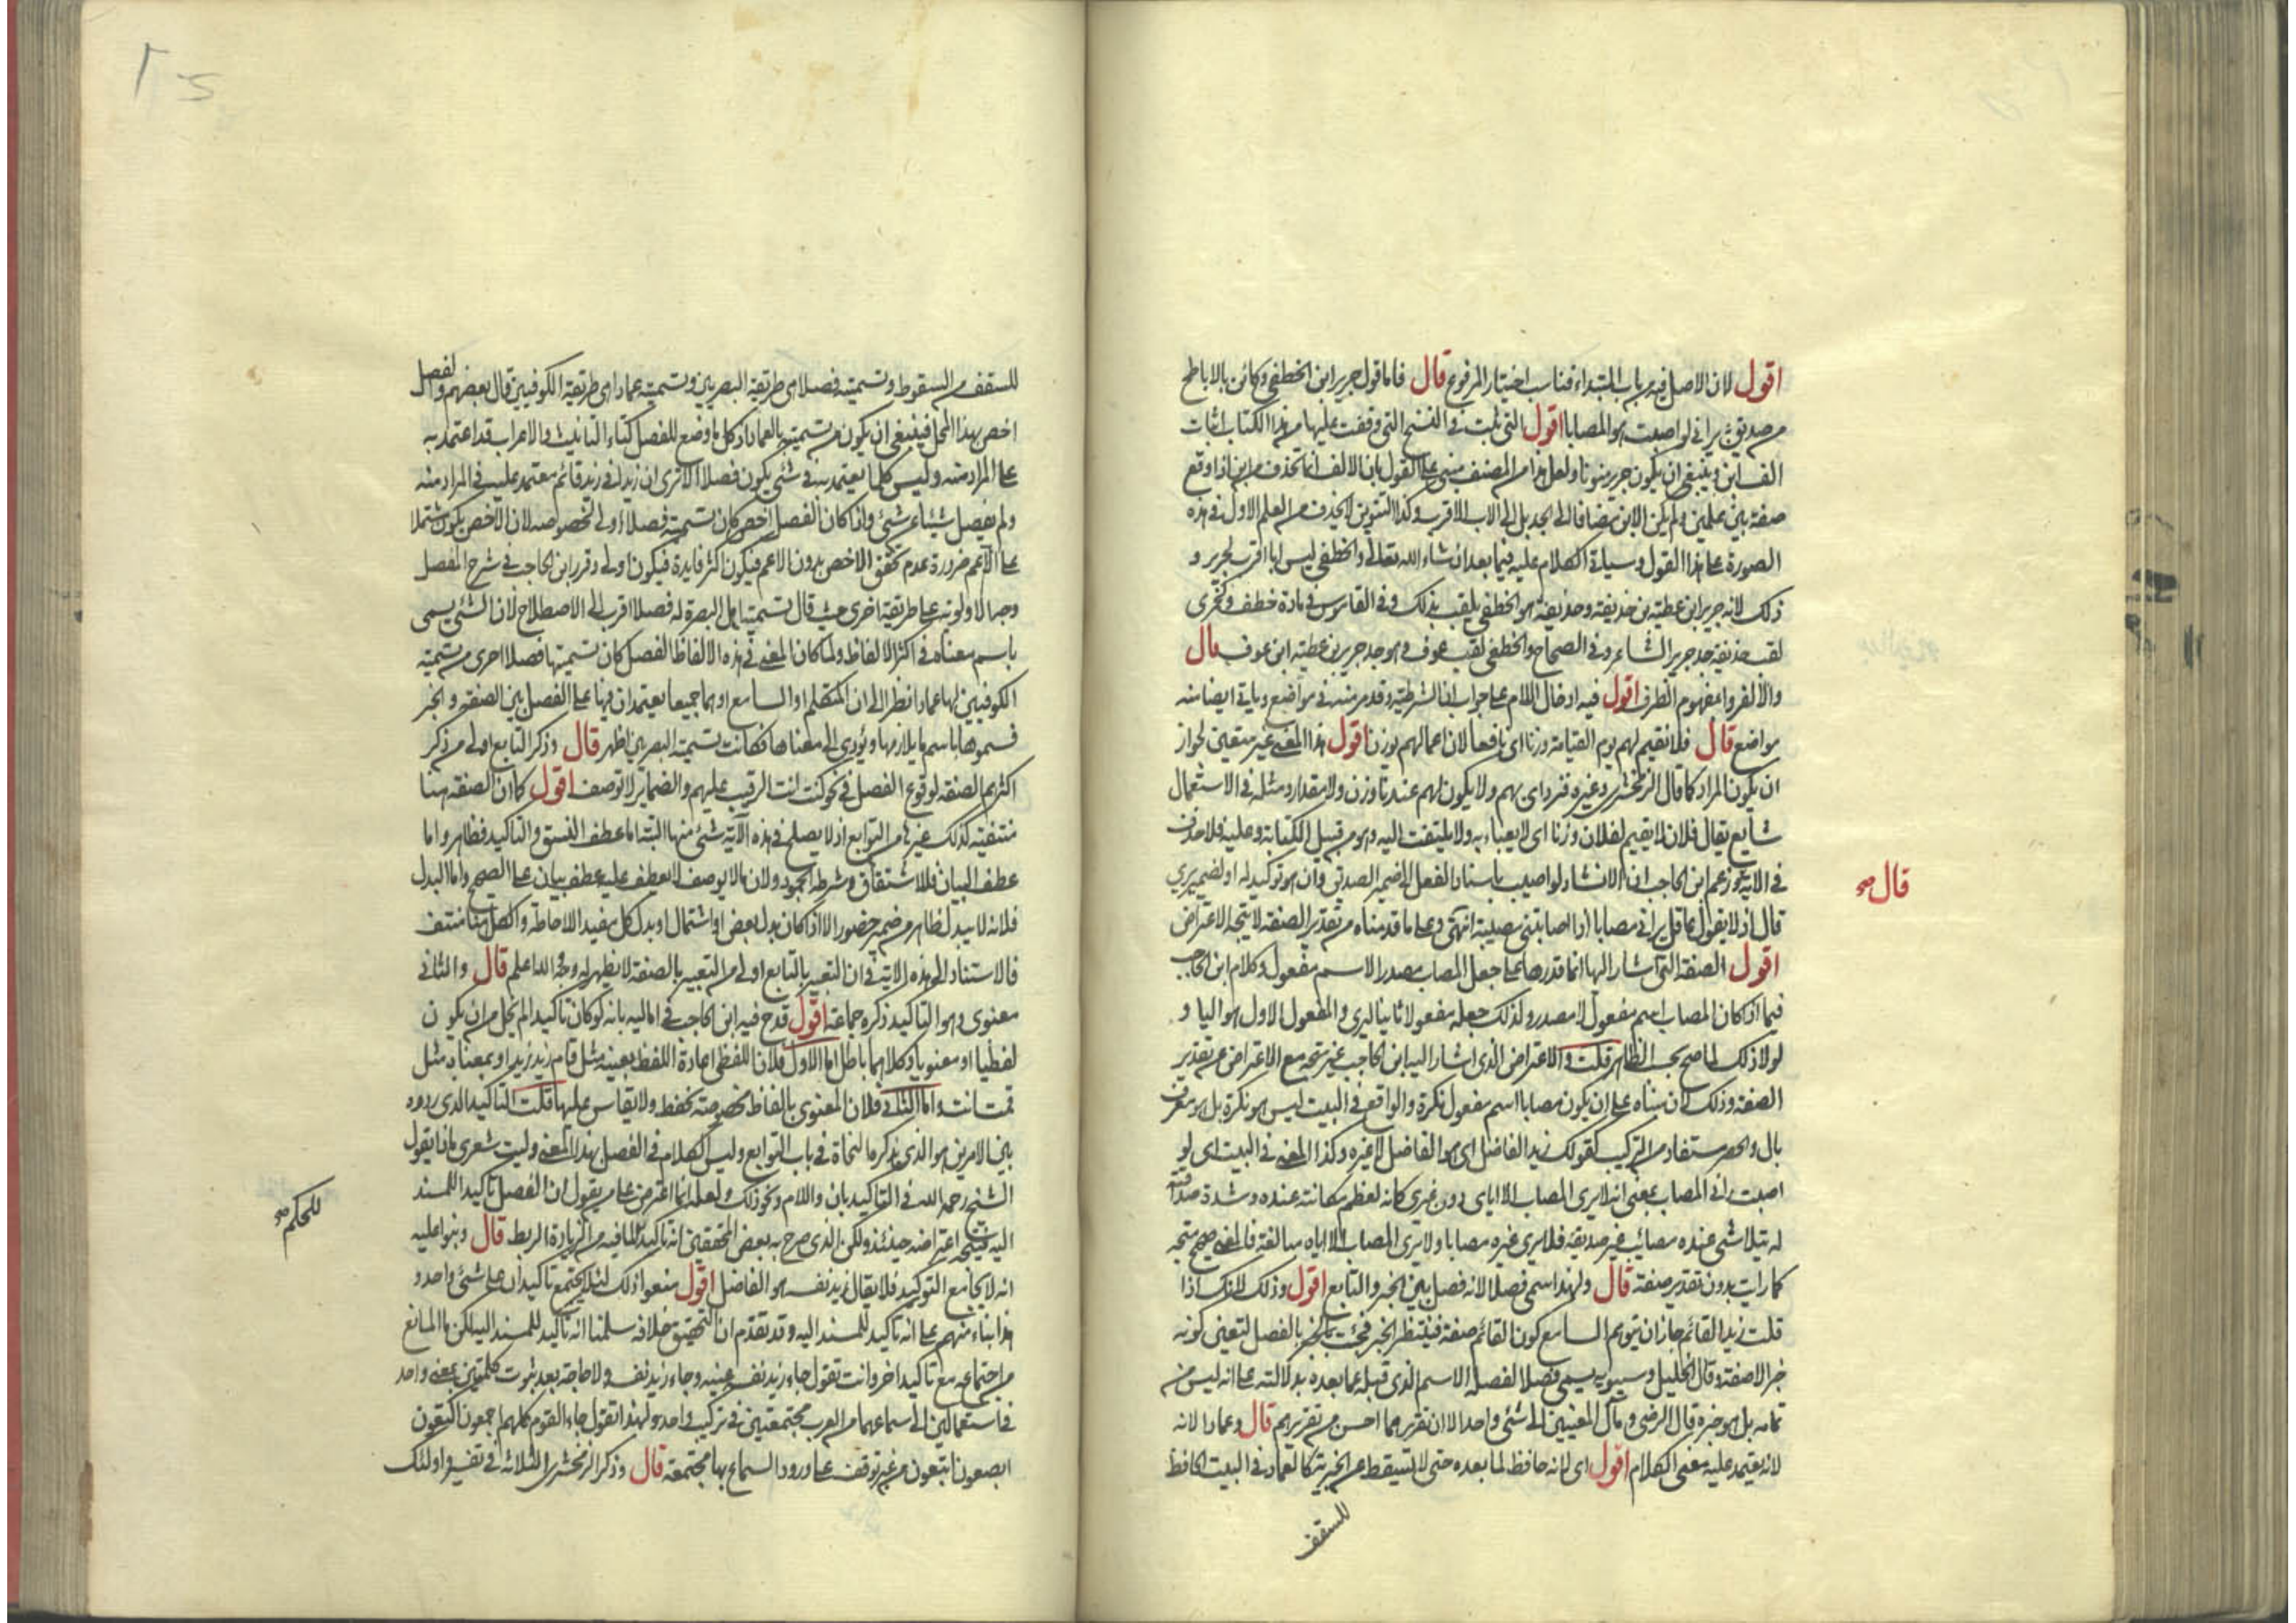 اقول لان الاصل فيه من باب المبتداء فناسب اختيار المرفوع قال فاما قول جرير ابن الخطفى وكائن بالاباطح
من صديق يرانى لو اصبت هو المصابا اقول التى ثبت فى النسخ التى وقفت عليها من هذا الكتاب اثبات
الف ابن وينبغى ان يكون جرير منونا ولعل هذا من المصنف مبنى على القول بان الالف انما تحذف من ابن اذا وقع
صفة بين علمين ولم يكن الابن مضافا الى الجد بل الى الاب الاقرب وكذا التنوين لا يحذف من العلم الاول فى هذه
الصورة على هذا القول وسياتى الكلام عليه فيما بعد ان شاء الله تعالى والخطفى ليس ابا اقرب لجرير و
ذلك لانه جرير ابن عطية بن حذيفة وحذيفة هو الخطفى يلقب بذلك وفى القاموس فى مادة خطف وكجمزى
لقب حذيفة جد جرير الشاعر وفى الصحاح والخطفى لقب عوف وهو جد جرير بن عطية ابن عوف قال
والا لفروا مفهوم الظرف اقول فيه ادخال اللام على جواب ان الشرطية وقد مر منه فى مواضع وياتى ايضا منه
مواضع قال فلا نقيم لهم يوم القيامة وزنا اى نافعا لان اعمالهم توزن اقول هذا المعنى غير متعين لجواز
ان يكون المراد كما قال الزمخشرى وغيره فنزدرى بهم ولا يكون لهم عندنا وزن ولا مقدار ومثله فى الاستعمال
شايع يقال فلان لا يقيم لفلان وزنا اى لا يعباء به ولا يلتفت اليه وهو من قبيل الكناية وعليه فلا حذف
فى الاية وزعم ابن الحاجب ان الانشاد لو اصيب باسناد الفعل الى ضمير الصديق وان هو توكيد له او لضمير يرى
قال اذ لا يقول عاقل يرانى مصابا اذا اصابتنى مصيبة انتهى وعلى ما قدمناه من تقدير الصفة لا يتجه الاعتراض
اقول الصفة التى اشار اليها انما قدرها على جعل المصاب مصدرا لا اسم مفعول وكلام ابن الحاجب
فيما اذا كان المصاب اسم مفعول لا مصدر ولذلك جعله مفعولا ثانيا ليرى والمفعول الاول هو اليا و
لولا ذلك لما صح بحسب الظاهر قلت والاعتراض الذى اشار اليه ابن الحاجب غير متجه مع الاعتراض عن تقدير
الصفة وذلك لان مبناه على ان يكون مصابا اسم مفعول نكرة والواقع فى البيت ليس هو نكرة بل هو معرف
بال والحصر مستفاد من التركيب كقولك زيد الفاضل اى هو الفاضل لا غيره وكذا المعنى فى البيت اى لو
اصبت رانى المصاب بمعنى انه لا يرى المصاب الا اياى دون غيرى كانه لعظم مكانته عنده وشدة صداقته
له تتلاشى عنده مصائب غير صديقه فلا يرى غيره مصابا ولا يرى المصاب الا اياه مبالغة فالمعنى صحيح متجه
كما رايت بدون تقدير صفة قال ولهذا سمى فصلا لانه فصل بين الخبر والتابع اقول وذلك لانك اذا
قلت زيد القائم جاز ان يتوهم السامع كون القائم صفة فينتظر الخبر فجئت بالفصل لتعين كونه
خبرا لا صفة وقال الخليل وسيبويه سمى فصلا لفصله الاسم الذى قبله عما بعده بدلالته على انه ليس من
تمامه بل هو خبره قال الرضى ومآل المعنيين الى شئ واحد الا ان تقريرهما احسن من تقريرهم قال وعمادا لانه
لانه يعتمد عليه معنى الكلام اقول اى لانه حافظ لما بعده حتى لا يسقط عن الخبرية كالعماد فى البيت الحافظ
للسقف
قال صح
للسقف من السقوط وتسميته فصلا هى طريقة البصريين وتسميته عمادا هى طريقة الكوفيين قال بعضهم والفصل
اخص بهذا المحل فينبغى ان يكون من تسميته بالعماد اذ كل ما وضع للفصل كتاء التانيث والاعراب قد اعتمد به
على المراد منه وليس كلما يعتمد به فى شئ يكون فصلا الا ترى ان زيدا فى زيد قائم معتمد عليه فى المراد منه
ولم يفصل شيئا عن شئ واذا كان الفصل اخص كان تسميته فصلا اولى لخصوصه لان الاخص يكون مشتملا
على الاعم ضرورة عدم تحقق الاخص بدون الاعم فيكون اكثر فايدة فيكون اولى وقرر ابن الحاجب فى شرح المفصل
وجه الاولوية على طريقة اخرى حيث قال تسمية اهل البصرة له فصلا اقرب الى الاصطلاح لان الشئ يسمى
باسم معناه فى اكثر الالفاظ ولما كان المعنى فى هذه الالفاظ الفصل كان تسميتها فصلا احرى من تسمية
الكوفيين لها عمادا نظرا الى ان المتكلم او السامع او هما جميعا يعتمدان فيها على الفصل بين الصفة والخبر
فسموها باسم ما يلازمها ويؤدى الى معناها فكانت تسمية البصريين اظهر قال وذكر التابع اولى من ذكر
اكثرهم الصفة لوقوع الفصل فى نحو كنت انت الرقيب عليهم والضماير لا توصف اقول كما ان الصفة هنا
منتفية كذلك غيرها من التوابع اذ لا يصلح فى هذه الآية شئ منها البتة اما عطف النسق والتاكيد فظاهر واما
عطف البيان فللاشتقاق وشرطه الجمود ولان ما لا يوصف لا يعطف عليه عطف بيان على الصحيح واما البدل
فلانه لا يبدل ظاهر من ضمير حضور الا اذا كان بدل بعض او اشتمال او بدل كل مفيد الاحاطة والكل هنا منتف
فالاستناد الى هذه الاية فى ان التعبير بالتابع اولى من التعبير بالصفة لا يظهر له وجه والله اعلم قال والثانى
معنوى وهو التاكيد ذكره جماعة اقول قدح فيه ابن الحاجب فى اماليه بانه لو كان تاكيدا لم يخل من ان يكون
لفظيا او معنويا وكلاهما باطل اما الاول فلان اللفظى اعادة اللفظ بعينه مثل قام زيد زيد او بمعناه مثل
قمت انت واما الثانى فلان المعنوى بالفاظ مخصوصة تحفظ ولا يقاس عليها قلت التاكيد الذى ردود
بين الامرين هو الذى يذكره النحاة فى باب التوابع وليس الكلام فى الفصل بهذا المعنى وليت شعرى ماذا يقول
الشيخ رحمه الله فى التاكيد بان واللام ونحو ذلك ولعله انما اعترض على من يقول ان الفصل تاكيد للمسند
اليه فيتجه اعتراضه حينئذ ولكن الذى صرح به بعض المحققين انه تاكيد للحكم لما فيه من زيادة الربط قال وبنوا عليه
انه لا يجامع التوكيد فلا يقال زيد نفسه هو الفاضل اقول منعوا ذلك لئلا يجتمع تاكيدان على شئ واحد و
هذا بناء منهم على انه تاكيد للمسند اليه وقد تقدم ان التحقيق خلافه سلمنا انه تاكيد للمسند اليه لكن ما المانع
من اجتماعه مع تاكيد اخر وانت تقول جاء زيد نفسه عينه وجاء زيد نفسه ولا حاجة بعد ثبوت كلمتين بمعنى واحد
فى استعمالين الى سماعهما من العرب مجتمعتين فى تركيب واحد ولهذا تقول جاء القوم كلهم اجمعون اكتعون
ابصعون ابتعون من غير توقف على ورود السماع بها مجتمعة قال وذكر الزمخشرى الثلاثة فى تفسير اولئك
للحكم صح